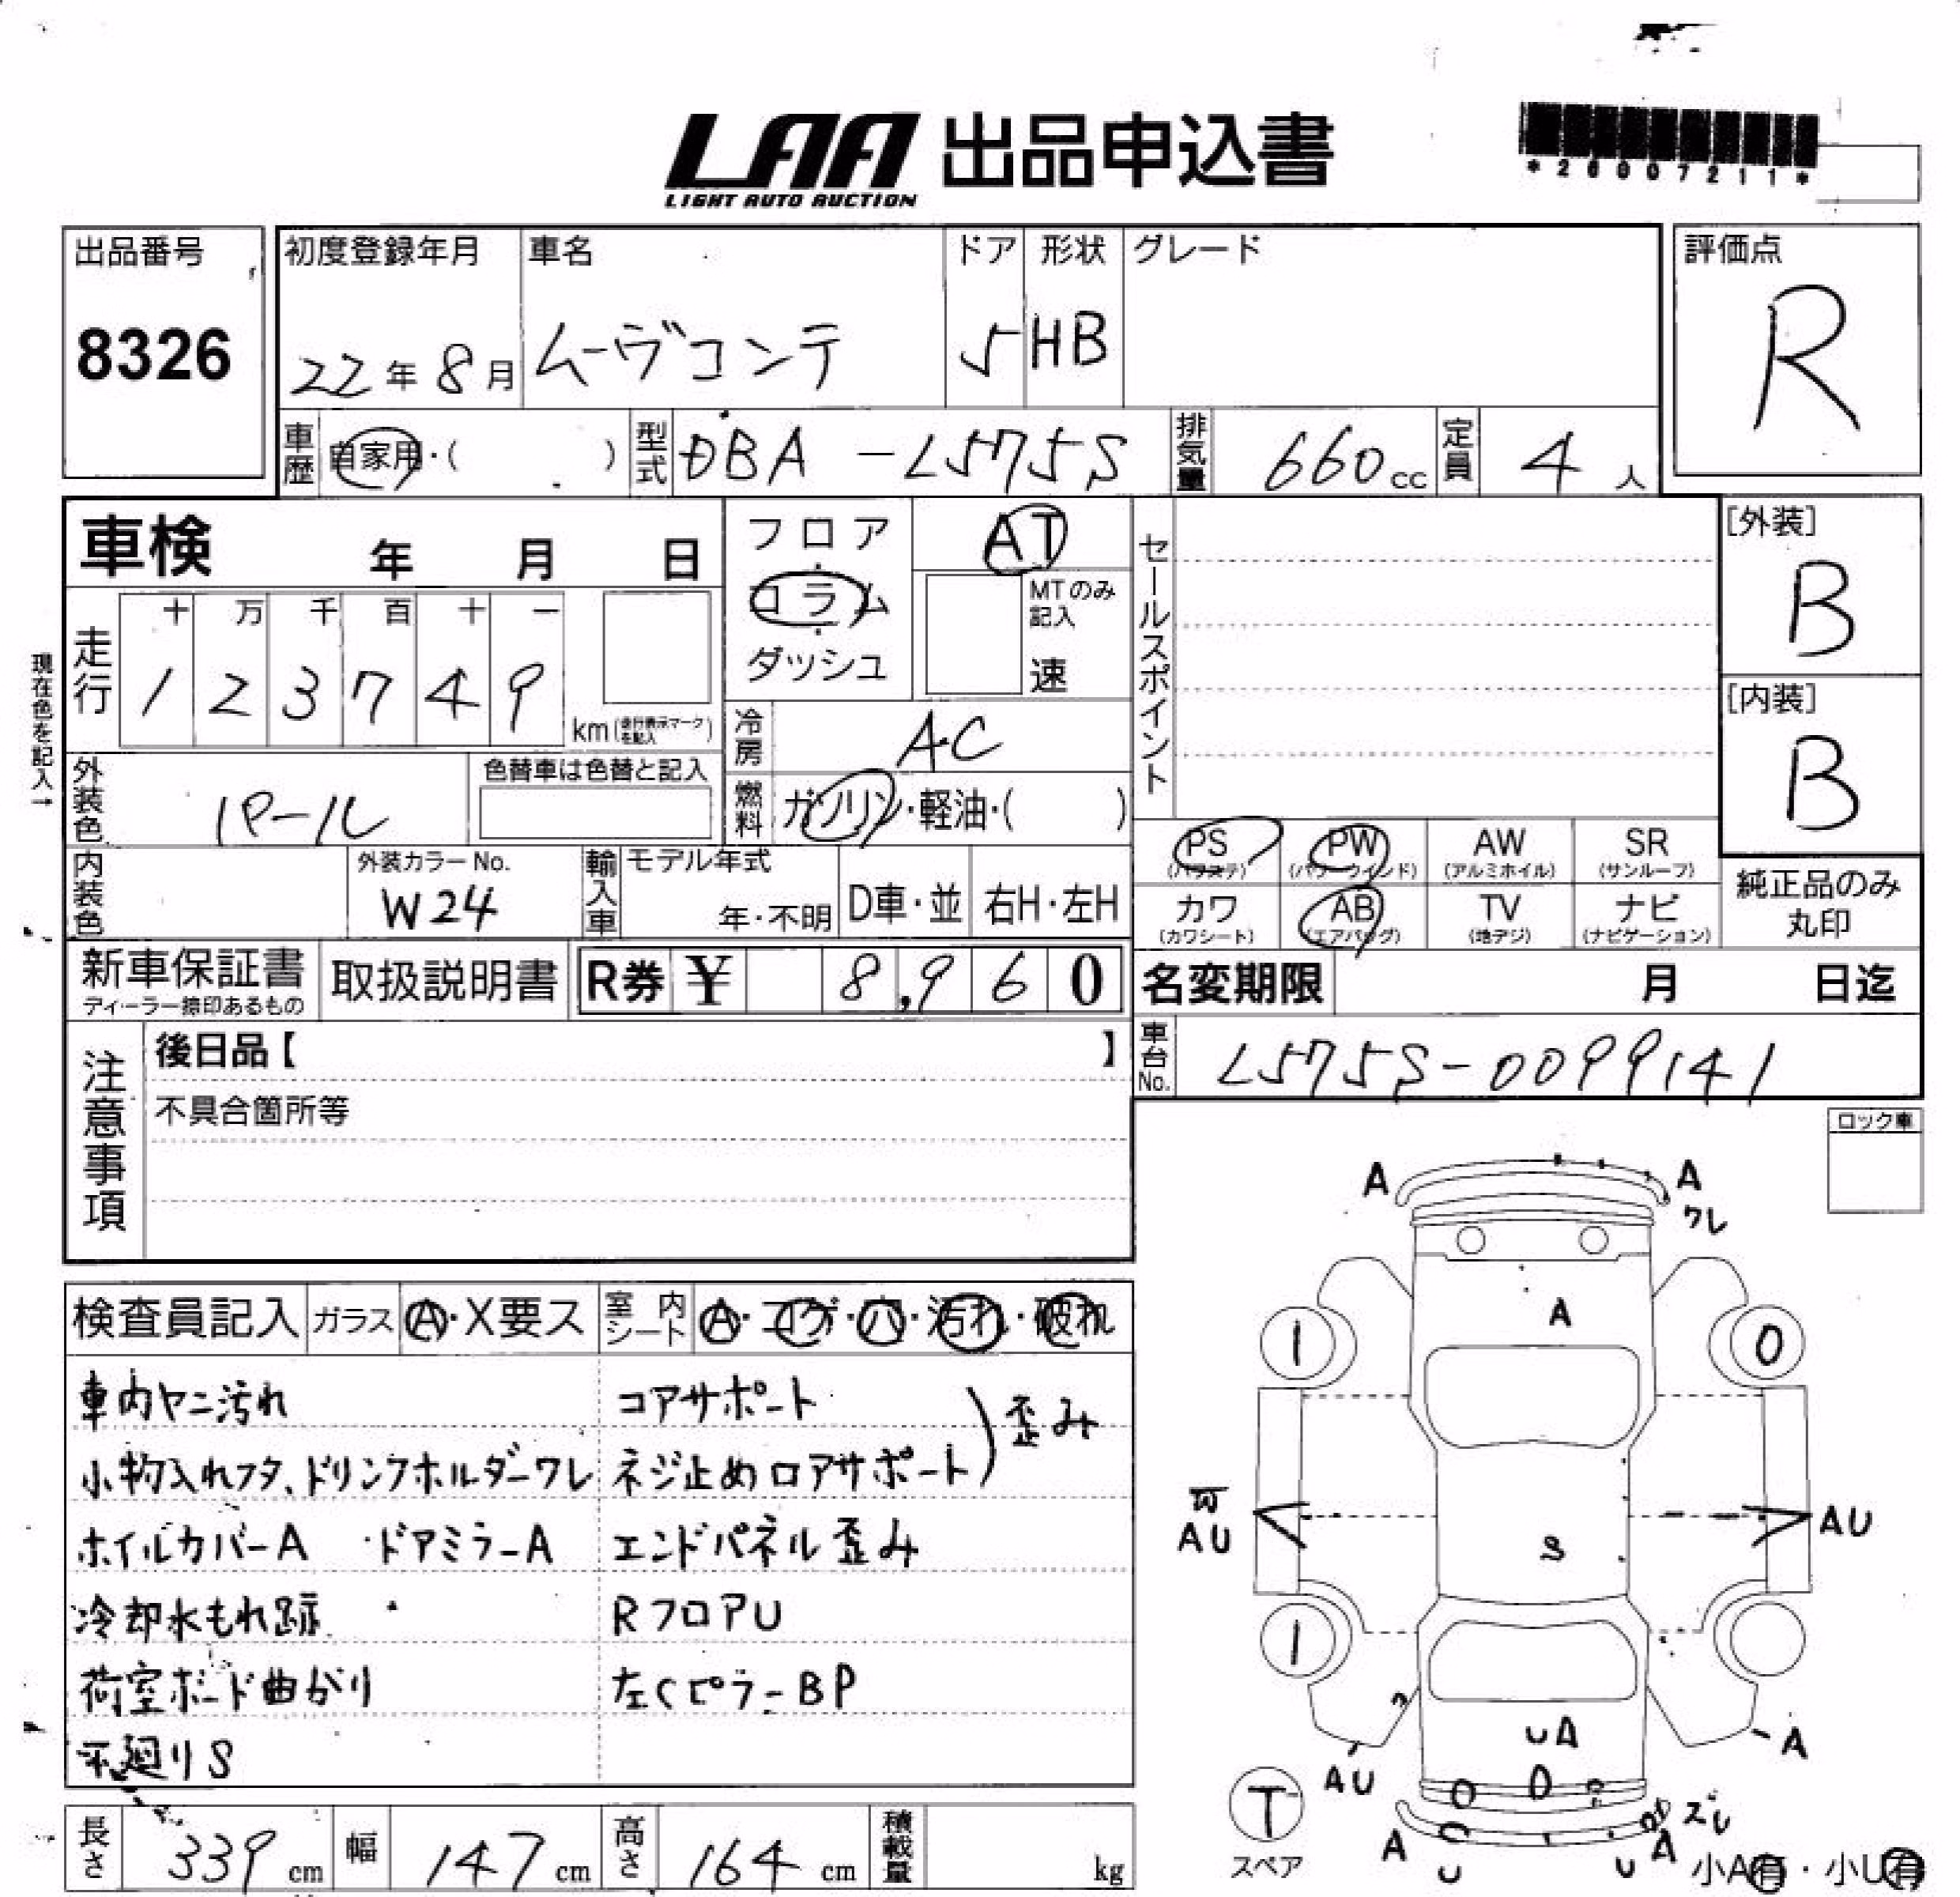 LAA 出品申込書
LIGHT AUTO AUCTION
*26007211*
出品番号
8326
初度登録年月
22年8月
車名
ムーヴコンテ
ドア
5
形状
HB
グレード
評価点
R
車歴 自家用・( )
型式 DBA-L575S
排気量 660cc
定員 4人
車検 年 月 日
フロア・コラム・ダッシュ
AT
MTのみ記入
速
セールスポイント
[外装]
B
[内装]
B
現在色を記入→
走行
十 万 千 百 十 一
1 2 3 7 4 9
km(走行表示マークを記入)
冷房 AC
外装色 パール
色替車は色替と記入
燃料 ガソリン・軽油・( )
内装色
外装カラーNo.
W24
輸入車
モデル年式
年・不明
D車・並
右H・左H
PS (パワステ)
PW (パワーウインド)
AW (アルミホイル)
SR (サンルーフ)
カワ (カワシート)
AB (エアバッグ)
TV (地デジ)
ナビ (ナビゲーション)
純正品のみ丸印
新車保証書
ディーラー捺印あるもの
取扱説明書
R券 ¥ 8,960
名変期限 月 日迄
注意事項
後日品【 】
不具合箇所等
車台No. L575S-0099141
ロック車
検査員記入
ガラス A・X要ス
室内シート A・コゲ・穴・汚れ・破れ
車内ヤニ汚れ
小物入れフタ、ドリンクホルダーワレ
ホイルカバーA ・ドアミラーA
冷却水もれ跡
荷室ボード曲がり
下廻りS
コアサポート
ネジ止めロアサポート
)歪み
エンドパネル歪み
RフロアU
左CピラーBP
A
A
ワレ
A
1
0
AU
AU
S
1
UA
A
AU
ズレ
A
U
U
A
T
スペア
小A有・小U有
長さ 339cm
幅 147cm
高さ 164cm
積載量 kg